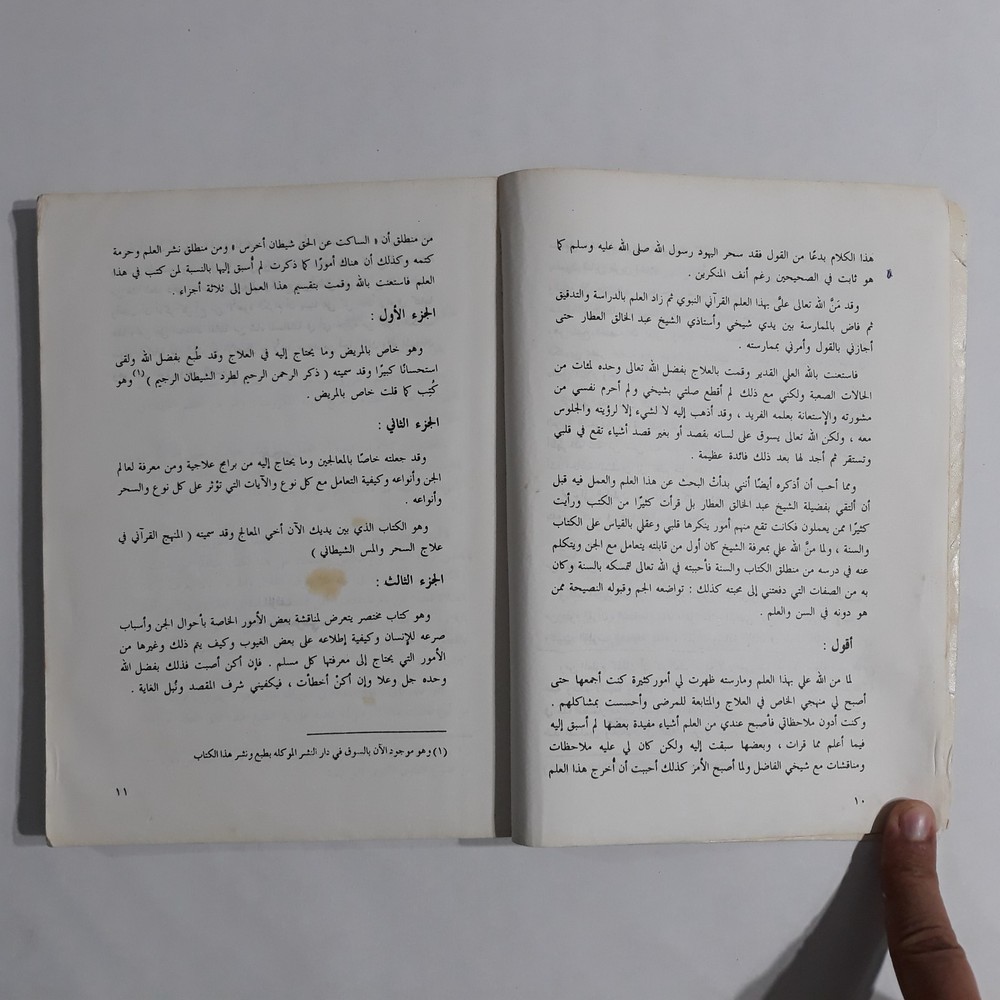 هذا الكلام بدعًا من القول فقد سحر اليهود رسول الله صلى الله عليه وسلم كما
هو ثابت في الصحيحين رغم أنف المنكرين .
وقد مَنَّ الله تعالى علىَّ بهذا العلم القرآني النبوي ثم زاد العلم بالدراسة والتدقيق
ثم فاض بالممارسة بين يدي شيخي وأستاذي الشيخ عبد الخالق العطار حتى
أجازني بالقول وأمرني بممارسته .
فاستعنت بالله العلي القدير وقمت بالعلاج بفضل الله تعالى وحده لمئات من
الحالات الصعبة ولكني مع ذلك لم أقطع صلتي بشيخي ولم أحرم نفسي من
مشورته والإستعانة بعلمه الفريد ، وقد أذهب إليه لا لشيء إلا لرؤيته والجلوس
معه ، ولكن الله تعالى يسوق على لسانه بقصد أو بغير قصد أشياء تقع في قلبي
وتستقر ثم أجد لها بعد ذلك فائدة عظيمة .
ومما أحب أن أذكره أيضًا أنني بدأتُ البحث عن هذا العلم والعمل فيه قبل
أن ألتقي بفضيلة الشيخ عبد الخالق العطار بل قرأت كثيرًا من الكتب ورأيت
كثيرًا ممن يعملون فكانت تقع منهم أمور ينكرها قلبي وعقلي بالقياس على الكتاب
والسنة ، ولما منَّ الله علي بمعرفة الشيخ كان أول من قابلته يتعامل مع الجن ويتكلم
عنه في درسه من منطلق الكتاب والسنة فأحببته في الله تعالى لتمسكه بالسنة وكان
به من الصفات التي دفعتني إلى محبته كذلك : تواضعه الجم وقبوله النصيحة ممن
هو دونه في السن والعلم .
أقول :
لما من الله علي بهذا العلم ومارسته ظهرت لي أمور كثيرة كنت أجمعها حتى
أصبح لي منهجي الخاص في العلاج والمتابعة للمرضى وأحسست بمشاكلهم .
وكنت أدون ملاحظاتي فأصبح عندي من العلم أشياء مفيدة بعضها لم أسبق إليه
فيما أعلم مما قرات ، وبعضها سبقت إليه ولكن كان لي عليه ملاحظات
ومناقشات مع شيخي الفاضل ولما أصبح الأمر كذلك أحببت أن أُخرج هذا العلم
١٠
من منطلق أن « الساكت عن الحق شيطان أخرس » ومن منطلق نشر العلم وحرمة
كتمه وكذلك أن هناك أمورًا كما ذكرت لم أُسبق إليها بالنسبة لمن كتب في هذا
العلم فاستعنت بالله وقمت بتقسيم هذا العمل إلى ثلاثة أجزاء .
الجزء الأول :
وهو خاص بالمريض وما يحتاج إليه في العلاج وقد طُبع بفضل الله ولقى
استحسانًا كبيرًا وقد سميته ( ذكر الرحمن الرحيم لطرد الشيطان الرجيم )(١) وهو
كُتيب كما قلت خاص بالمريض .
الجزء الثاني :
وقد جعلته خاصًا بالمعالجين وما يحتاج إليه من برامج علاجية ومن معرفة لعالم
الجن وأنواعه وكيفية التعامل مع كل نوع والآيات التي تؤثر على كل نوع والسحر
وأنواعه .
وهو الكتاب الذي بين يديك الآن أخي المعالج وقد سميته ( المنهج القرآني في
علاج السحر والمس الشيطاني )
الجزء الثالث :
وهو كتاب مختصر يتعرض لمناقشة بعض الأمور الخاصة بأحوال الجن وأسباب
صرعه للإنسان وكيفية إطلاعه على بعض الغيوب وكيف يتم ذلك وغيرها من
الأمور التي يحتاج إلى معرفتها كل مسلم . فإن أكن أصبت فذلك بفضل الله
وحده جل وعلا وإن أكنْ أخطأت ، فيكفيني شرف المقصد ونُبل الغاية .
(١) وهو موجود الآن بالسوق في دار النشر الموكله بطبع ونشر هذا الكتاب
١١